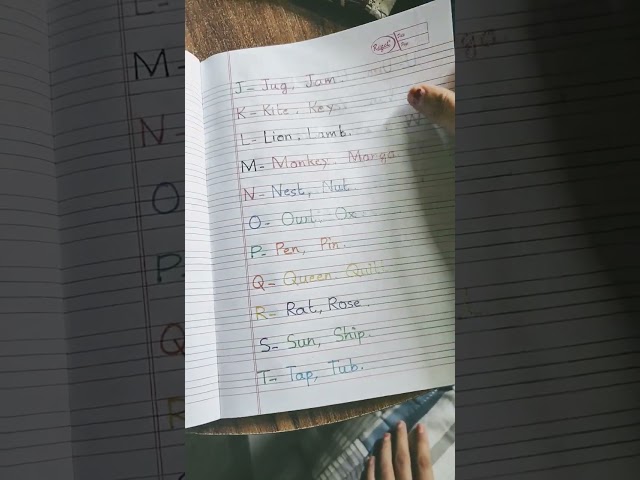 J - Jug, Jam.
K - Kite, Key
L - Lion, Limb.
M - Monkey, Manga
N - Nest, Nut
O - Owl, Ox
P - Pen, Pin.
Q - Queen, Quill
R - Rat, Rose.
S - Sun, Ship.
T - Tap, Tub.